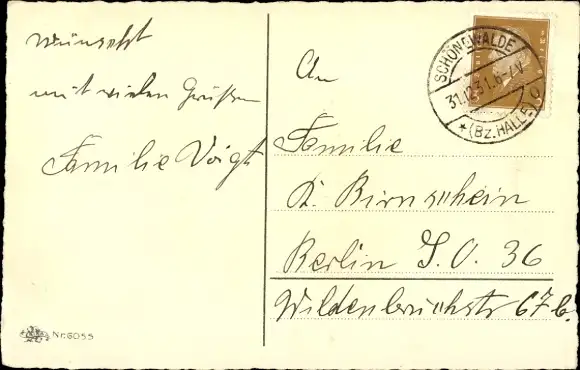 wünscht
mit vielen Grüßen
Familie Voigt
Nr. 6055
An
Familie
K. Birnschein
Berlin S. O. 36
Wildenbruchstr 67 b.
SCHÖNEWALDE
31.12.31. 6-7 V.
* (BZ. HALLE) a